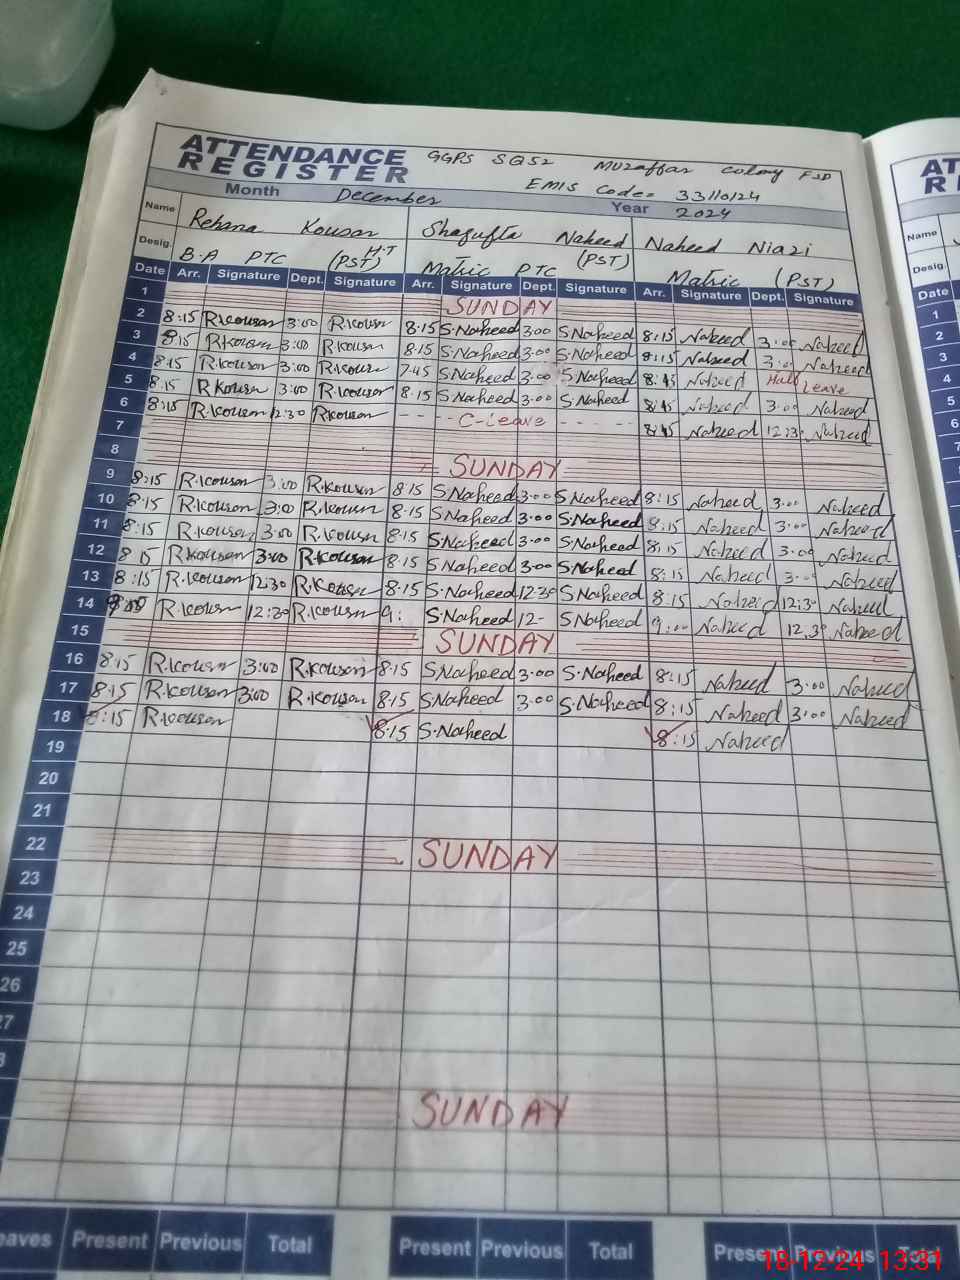 ATTENDANCE REGISTER GGPS SQ52 Muzaffar Colony FSD
EMIS Code= 33110124
Month December Year 2024
Name Rehana Kousar Shagufta Naheed Naheed Niazi
Desig. B.A PTC (PST) H.T Matric PTC (PST) Matric (PST)
Date Arr. Signature Dept. Signature Arr. Signature Dept. Signature Arr. Signature Dept. Signature
1 SUNDAY
2 8:15 R.Kousar 3:00 R.Kousar 8.15 S.Naheed 3.00 S.Naheed 8:15 Naheed 3.00 Naheed
3 8:15 R.Kousar 3:00 R.Kousar 8.15 S.Naheed 3.00 S.Naheed 8:15 Naheed 3.00 Naheed
4 R.Kousar 3:00 R.Kousar 7.45 S.Naheed 3.00 S.Naheed Naheed Half Leave
5 8.15 R.Kousar 3:00 R.Kousar 8.15 S.Naheed 3.00 S.Naheed Naheed 3.00 Naheed
6 8:15 R.Kousar 12:30 R.Kousar C-Leave Naheed 12:3 Naheed
7
8 SUNDAY
9 8:15 R.Kousar 3:00 R.Kousar 8.15 S.Naheed 3.00 S.Naheed 8:15 Naheed 3.00 Naheed
10 8:15 R.Kousar 3:00 R.Kousar 8.15 S.Naheed 3.00 S.Naheed 8:15 Naheed 3.00 Naheed
11 8:15 R.Kousar 3:00 R.Kousar 8.15 S.Naheed 3.00 S.Naheed 8:15 Naheed 3.00 Naheed
12 8 15 R.Kousar 3:00 R.Kousar 8.15 S.Naheed 3.00 S.Naheed 8:15 Naheed 3.00 Naheed
13 8:15 R.Kousar 12:30 R.Kousar 8.15 S.Naheed 12.30 S.Naheed 8:15 Naheed 12:3 Naheed
14 R.Kousar 12:30 R.Kousar 9: S.Naheed 12- S.Naheed 9:00 Naheed 12.30 Naheed
15 SUNDAY
16 8:15 R.Kousar 3:00 R.Kousar 8.15 S.Naheed 3.00 S.Naheed 8:15 Naheed 3.00 Naheed
17 8:15 R.Kousar 3:00 R.Kousar 8.15 S.Naheed 3.00 S.Naheed 8:15 Naheed 3.00 Naheed
18 8:15 R.Kousar 8.15 S.Naheed 8:15 Naheed
19
20
21
22 SUNDAY
23
24
25
26
SUNDAY
Present Previous Total Present Previous Total Present Previous Total
18-12-24 13:31
AT
R
Name
Desig.
Date
1
2
3
4
5
6